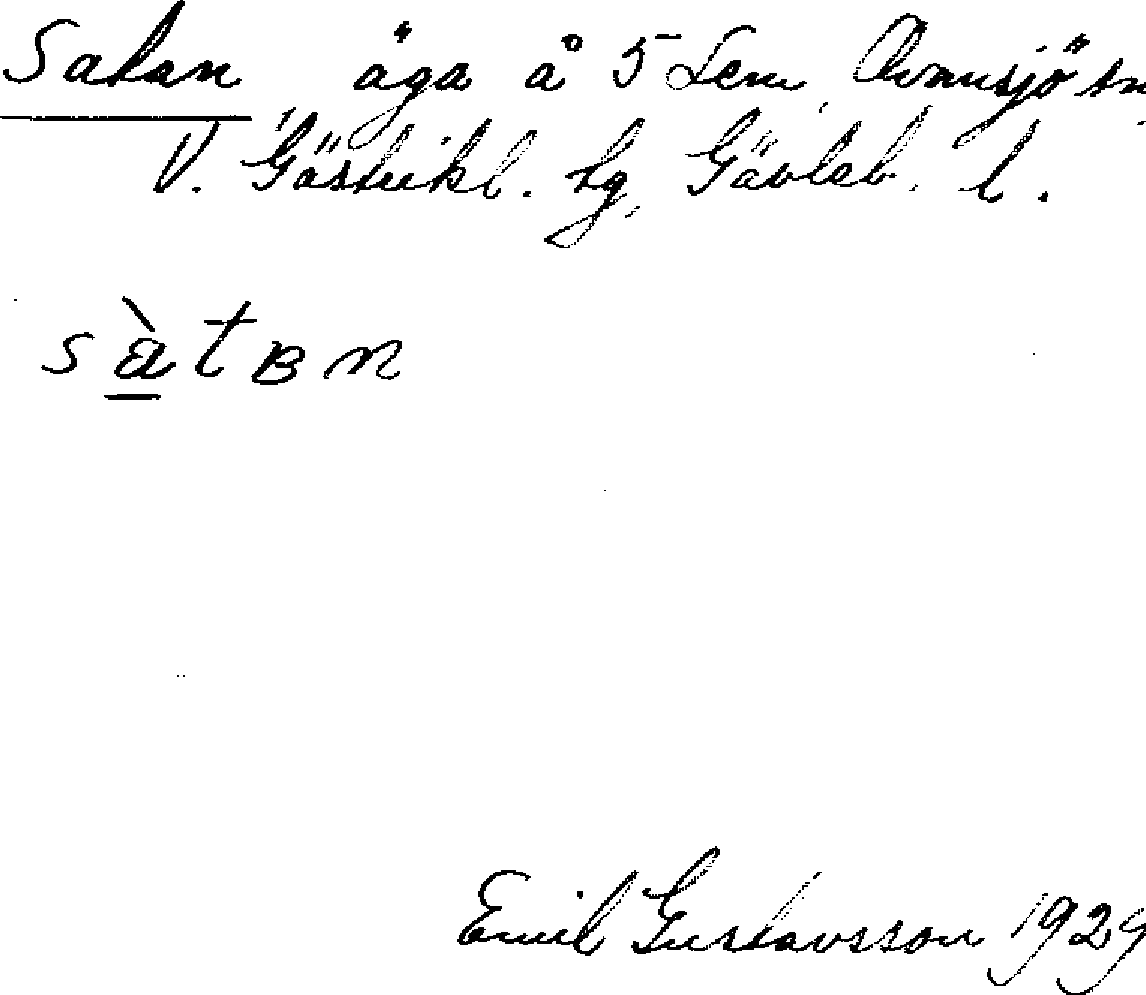 Satan äga å 5 Lem, Ovansjö sn,
V. Gästrikl. tg, Gävleb. l.
sàtʙn
Emil Gustavsson 1929